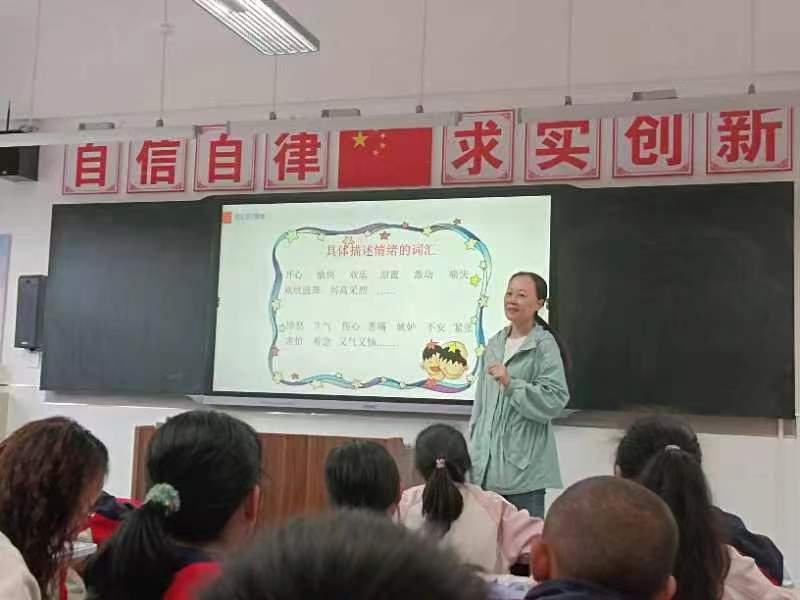 自信自律 求实创新
具体描述情绪的词汇
开心 愉快 欢乐 甜蜜 激动 痛快
欢欣鼓舞 兴高采烈 ……
愤怒 生气 伤心 悲痛 嫉妒 不安 紧张
害怕 着急 又气又恼……